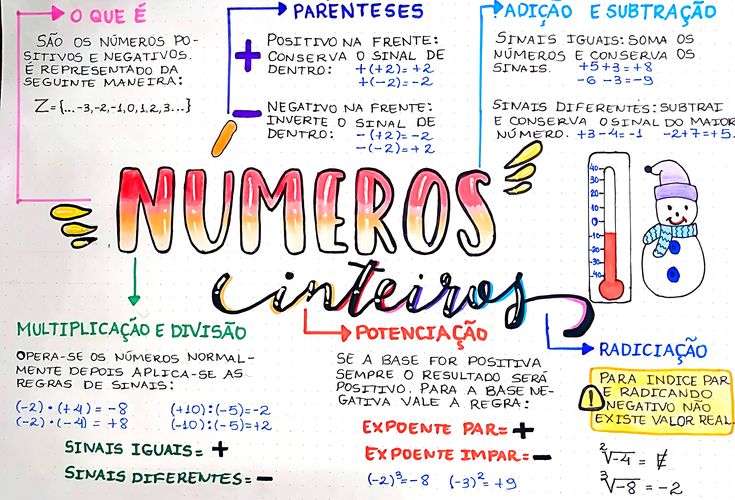 O QUE É
SÃO OS NÚMEROS PO-
SITIVOS E NEGATIVOS.
É REPRESENTADO DA
SEGUINTE MANEIRA:
Z={...-3,-2,-1,0,1,2,3...}
PARÊNTESES
+
POSITIVO NA FRENTE:
CONSERVA O SINAL DE
DENTRO: +(+2)=+2
+(-2)=-2
-
NEGATIVO NA FRENTE:
INVERTE O SINAL DE
DENTRO: -(+2)=-2
-(-2)=+2
ADIÇÃO E SUBTRAÇÃO
SINAIS IGUAIS: SOMA OS
NÚMEROS E CONSERVA OS
SINAIS. +5+3=+8
-6-3=-9
SINAIS DIFERENTES: SUBTRAI
E CONSERVA O SINAL DO MAIOR
NÚMERO. +3-4=-1 -2+7=+5.
NÚMEROS
inteiros
40
30
20
10
0
-10
-20
-30
-40
MULTIPLICAÇÃO E DIVISÃO
OPERA-SE OS NÚMEROS NORMAL-
MENTE DEPOIS APLICA-SE AS
REGRAS DE SINAIS:
(-2)·(+4)=-8 (+10):(-5)=-2
(-2)·(-4)=+8 (-10):(-5)=+2
SINAIS IGUAIS= +
SINAIS DIFERENTES= -
POTENCIAÇÃO
SE A BASE FOR POSITIVA
SEMPRE O RESULTADO SERÁ
POSITIVO. PARA A BASE NE-
GATIVA VALE A REGRA:
EXPOENTE PAR= +
EXPOENTE IMPAR= -
(-2)³=-8 (-3)²=+9
RADICIAÇÃO
!
PARA INDICE PAR
E RADICANDO
NEGATIVO NÃO
EXISTE VALOR REAL.
²√-4 = ∄
³√-8 = -2